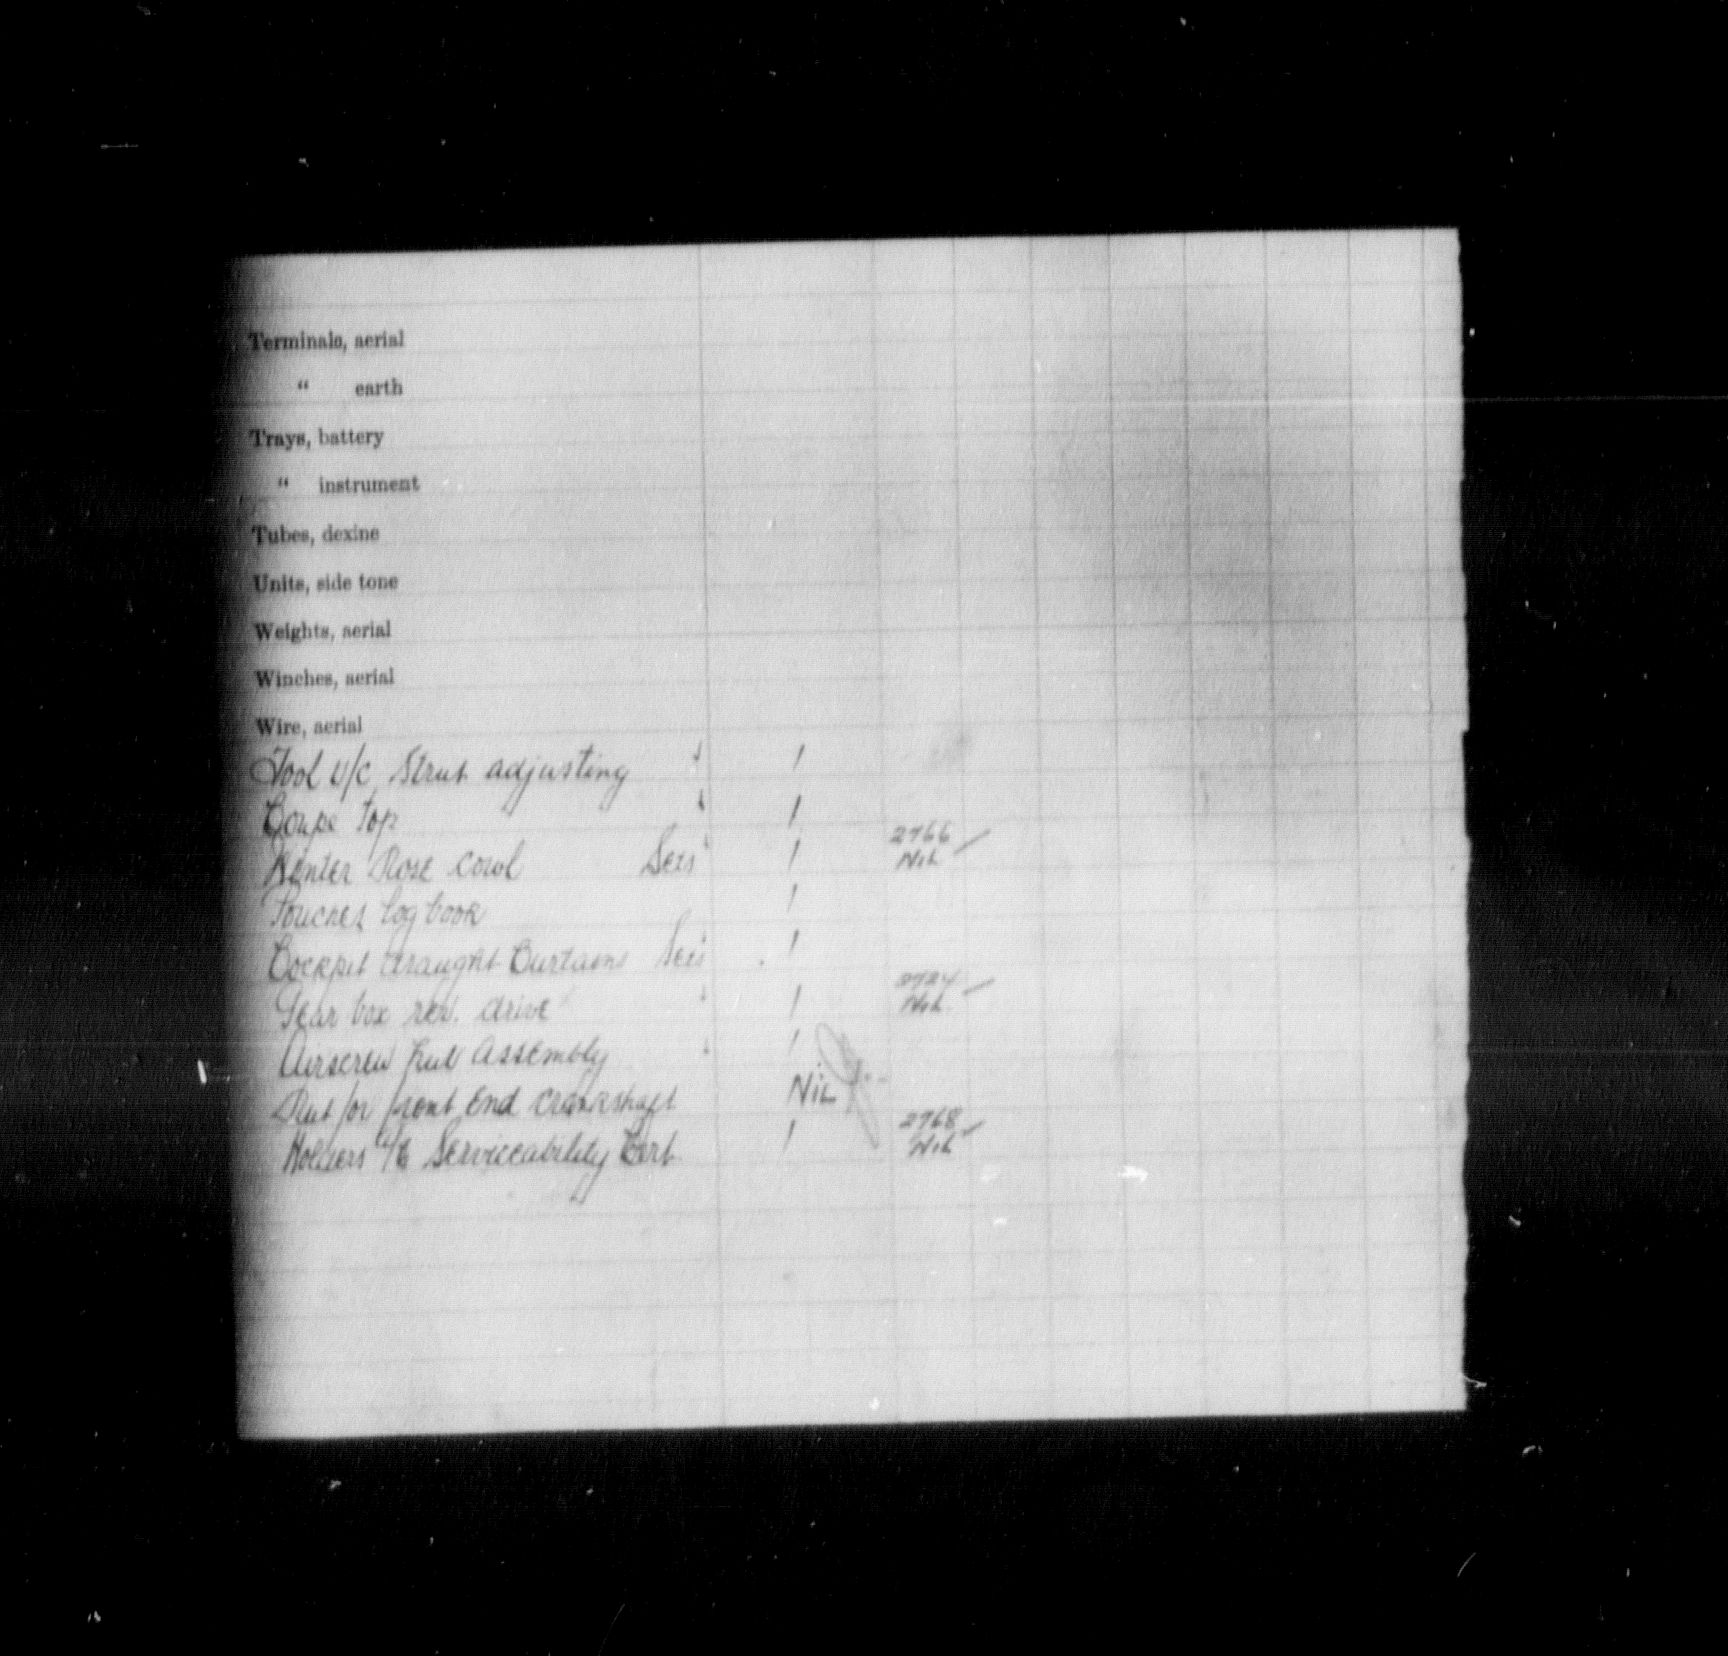 Terminals, aerial
“ earth
Trays, battery
“ instrument
Tubes, dexine
Units, side tone
Weights, aerial
Winches, aerial
Wire, aerial
Tool U/C Strut adjusting 1
Coupe Top 1
Winter Nose cowl Sets 1 2766 Nil
Pouches log book 1
Cockpit draught Curtains Sets 1
Gear box rev. drive 1 2724 Nil
Airscrew hub Assembly 1
Nut for front End crankshaft Nil
Holders Serviceability Cert 1 2768 Nil